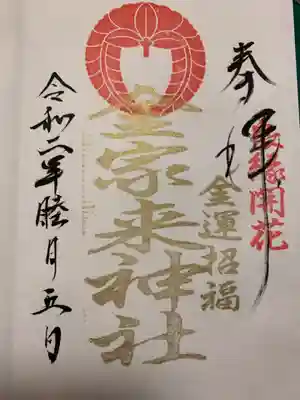 奉拝
良縁開花
金運招福
金宗来神社
令和二年睦月五日